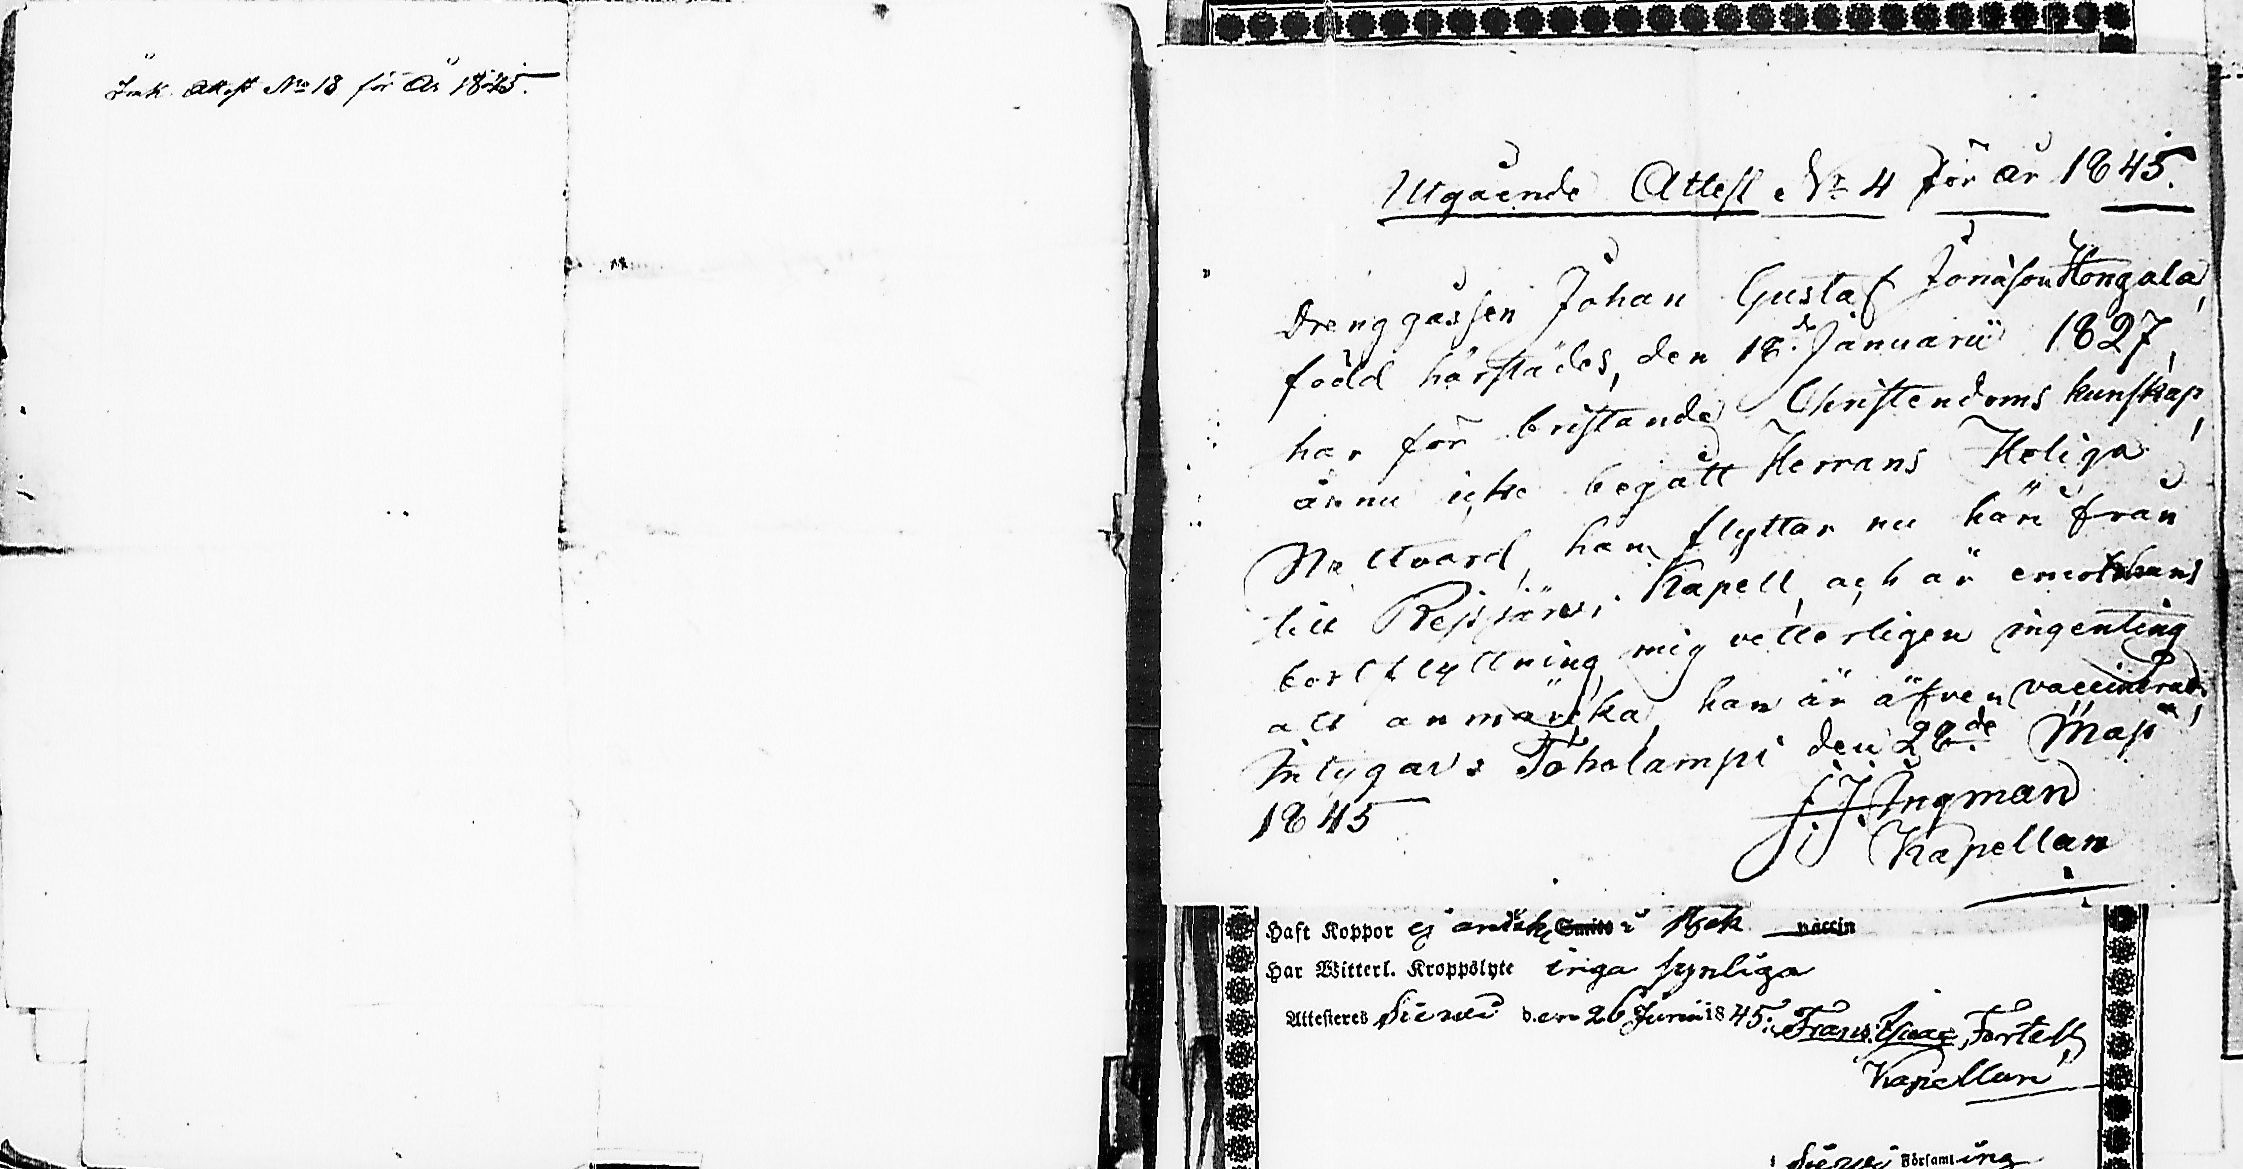 Ink. Attest No 18 för År 1845.
Utgående Attest No 4 för år 1845.
Drenggåssen Johan Gustaf Jonasson Hongala,
född härstädes, den 18de Januarii 1827,
har för bristande Christendoms kunskap,
ännu icke begått Herrans Heliga
Nattvard, han flyttar nu härifrån
till Reisjärvi Kapell, och är emot hans
bortflyttning, mig vetterligen ingenting
att anmärka, han är äfven vaccinerad,
Intygar: Toholampi den 22de Maji
1845
J. J. Ingman
Kapellan
Haft Koppor ej vaccin
Har Witterl. Kroppslyte inga synliga
Attesteres Sievi den 26 Junii 1845. Frans Isaac Fortell
Kapellan
Sievi Församling